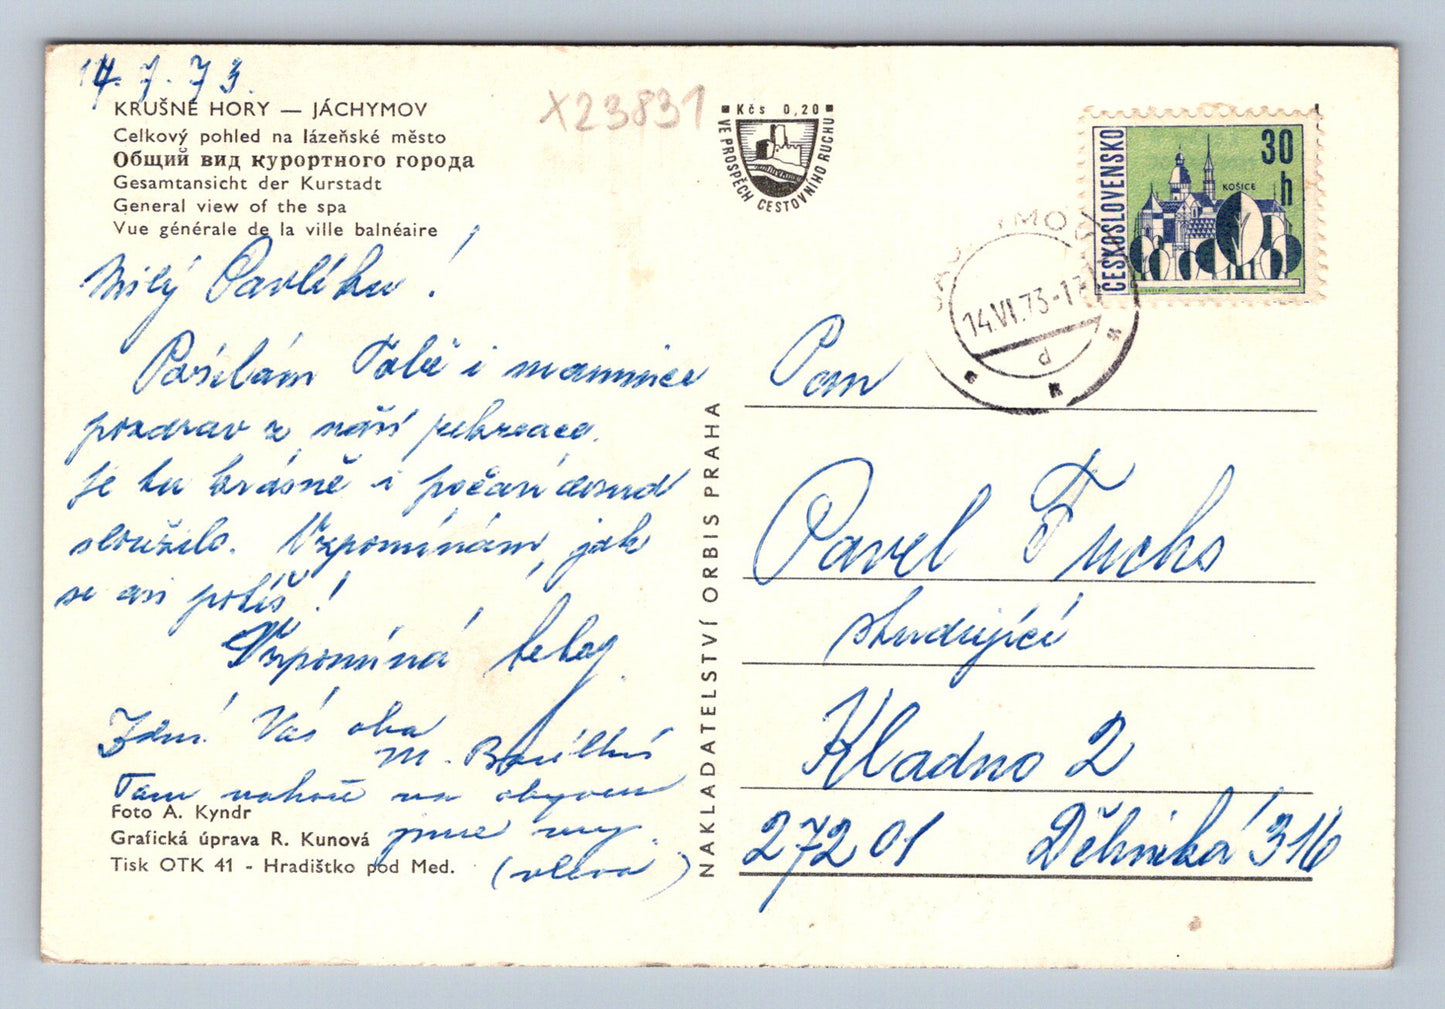 14.7.73.
KRUŠNÉ HORY — JÁCHYMOV
Celkový pohled na lázeňské město
Общий вид курортного города
Gesamtansicht der Kurstadt
General view of the spa
Vue générale de la ville balnéaire
X23831
Kčs 0,20
VE PROSPĚCH CESTOVNÍHO RUCHU
ČESKOSLOVENSKO
30 h
KOŠICE
14.VI.73-17
d
Milý Pavlíku!
Posílám Tobě i mamince
pozdrav z naší rekreace.
Je tu krásně i počasí dosud
sloužilo. Vzpomínám, jak
se asi potíš!
Vzpomíná
Zdraví Vás oba
M.
Tam nahoře na obzoru
jsme my.
(vlevo)
Foto A. Kyndr
Grafická úprava R. Kunová
Tisk OTK 41 - Hradištko pod Med.
NAKLADATELSTVÍ ORBIS PRAHA
Pan
Pavel Fuchs
studující
Kladno 2
272 01 Dělnická 316